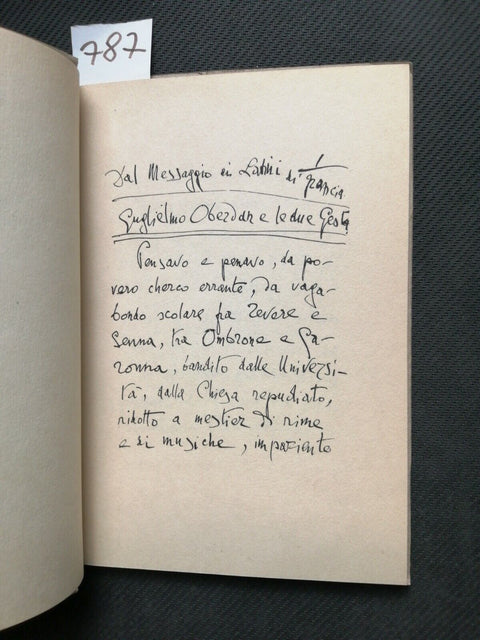 787
Dal Messaggio ai Latini di Francia
Guglielmo Oberdan e le due Gesta
Pensavo e penavo, da po-
vero cherco errante, da vaga-
bondo scolare fra Tevere e
Senna, tra Ombrone e Ga-
ronna, bandito dalle Universi-
tà, dalla Chiesa repudiato,
ridotto a mestier di rime
e di musiche, impaziente